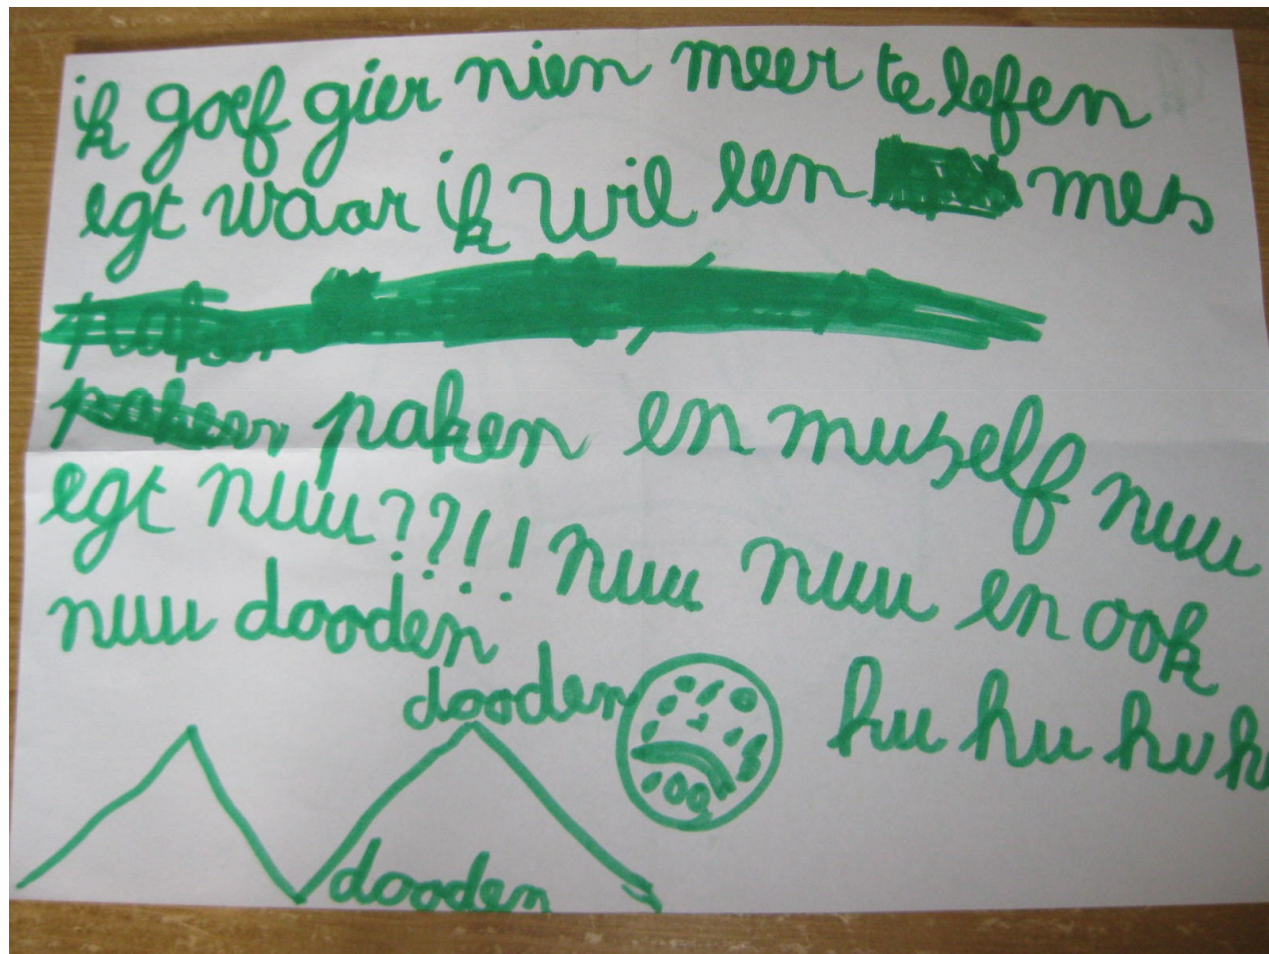 ik goef gier nien meer te lefen
egt waar ik wil een mes
paken en muself nuu
egt nuu??!! nuu nuu en ook
nuu dooden
dooden
hu hu hu h
dooden